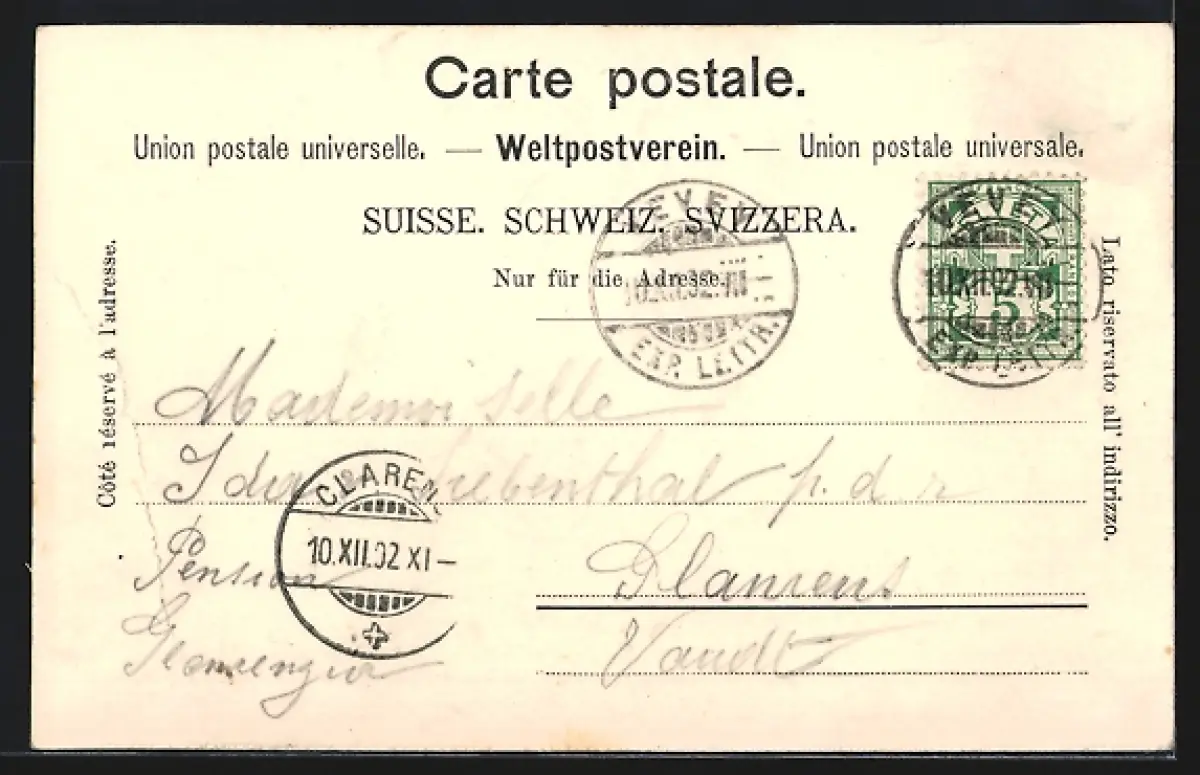 Carte postale.
Union postale universelle. — Weltpostverein. — Union postale universale.
SUISSE. SCHWEIZ. SVIZZERA.
Nur für die Adresse.
Côté réservé à l'adresse.
Lato riservato all' indirizzo.
VEVEY
10.XII.02.VII—
EXP. LETTR.
VEVEY
10.XII.02.VII—
EXP. LETTR.
5
Mademoiselle
Ida p. d. r
Pension
Vaudt
CLAREN
10.XII.02 XI—